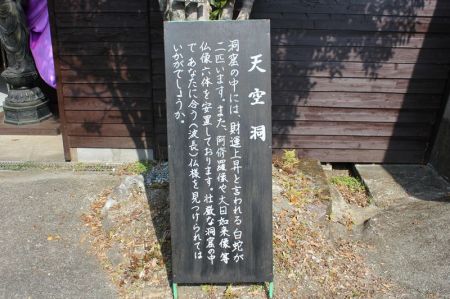 天空洞
洞窟の中には、財運上昇と言われる白蛇が
二匹います。また、阿修羅像や大日如来像等
仏像六体を安置しております。壮厳な洞窟の中
であなたに合う(波長)仏様を見つけられては
いかがでしょうか。